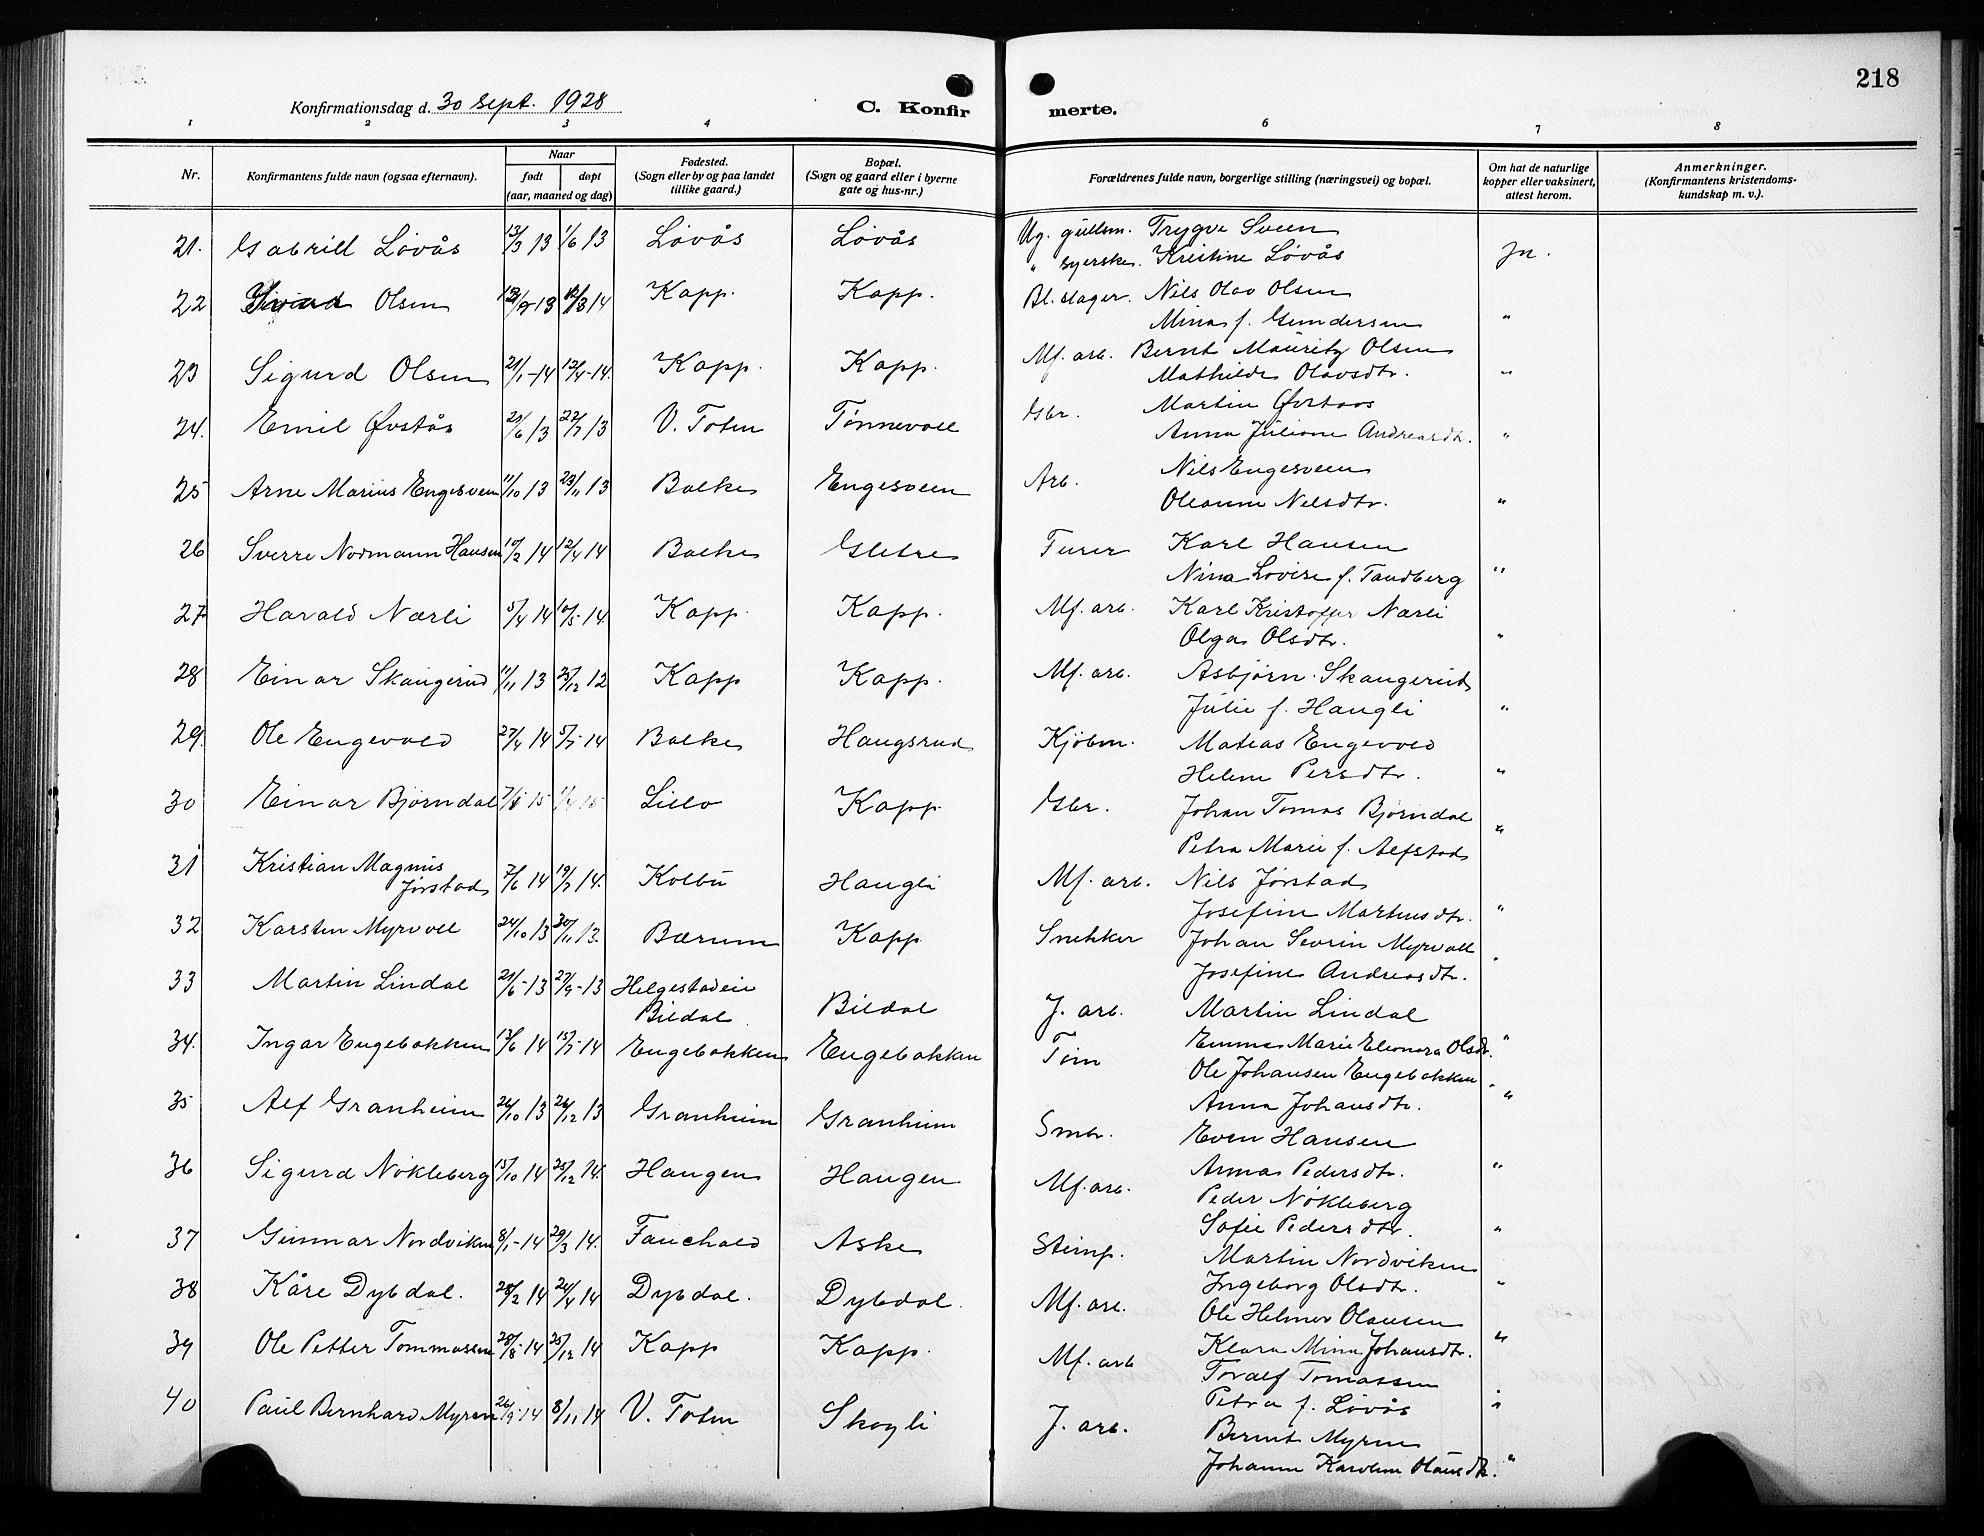 218
Konfirmationsdag d. 30 sept. 1928
C. Konfirmerte.
1 2 3 4 5 6 7 8
Nr.
Konfirmantens fulde navn (ogsaa efternavn).
Naar
født
døpt
(aar, maaned og dag)
Fødested.
(Sogn eller by og paa landet
tillike gaard.)
Bopæl.
(Sogn og gaard eller i byerne
gate og hus-nr.)
Forældrenes fulde navn, borgerlige stilling (næringsvei) og bopæl.
Om hat de naturlige
kopper eller vaksinert,
attest herom.
Anmerkninger.
(Konfirmantens kristendoms-
kundskap m. v.).
21. Gabrill Løvås 13/3 13 1/6 13 Løvås Løvås Ug. gullsm. Trygve Sveen
" syerske. Kristine Løvås Ja.
22 Olsen Kapp. Kapp. Bl. slager. Nils Olav Olsen
Mina f. Gundersen "
23 Sigurd Olsen 21/1-14 13/4-14. Kapp. Kapp. Mf. arb. Bernt Mauritz Olsen
Mathilde Olavsdtr. "
24. Emil Øvstås 6 13 22/7 13 V. Toten Tønnevoll Gbr. Martin Øvstaas
Anna Juliane Andreasdtr. "
25 Arne Marius Engesveen 11/10 13 23/11 13 Balke Engesveen Arb. Nils Engesveen
Oleanne Nilsdtr. "
26 Sverre Normann Hansen 10/2 14 12/4 14 Balke Gletre Furer Karl Hansen
Nina Lovise f. Tandberg "
27 Harald Nærli 5/4 14 10/5-14 Kapp. Kapp. Mf. arb. Karl Kristoffer Nærli
Olga Olsdtr. "
28 Einar Skangerud 11/11 13 25/12 12 Kapp Kapp. Mf. arb. Asbjørn Skangerud
Julie f. Haugli "
29. Ole Engevold 27/4 14 5/7-14 Balke Haugsrud Kjøbm. Matias Engevold
Helene Persdtr. "
30 Einar Bjørndal 15 15 Lillo Kapp. Gbr. Johan Tomas Bjørndal
Petra Marie f. Alfstad "
31 Kristian Magnus
Jørstad 7/6 14 19/7 14. Kolbu Haugli Mf. arb. Nils Jørstad
Josefine Martinusdtr. "
32 Karsten Myrvoll 24/10 13 30/11 13. Bærum Kapp Snekker Johan Sevrin Myrvoll
Josefine Andreasdtr. "
33 Martin Lindal 21/6-13 27/9-13 Helgestadeie
Bildal Bildal J. arb. Martin Lindal
Emma Marie Eleonora Olsdtr. "
34. Ingar Engebakken 13/6 14 15/7-14 Engebakken Engebakken Tøm Ole Johansen Engebakken "
Anna Johansdtr. "
35 Alf Granheim 26/10 13 26/12 13 Granheim Granheim Smbr. Even Hansen
Anna Pedersdtr. "
36 Sigurd Nøkleberg 15/10 14 25/12 14. Haugen Haugen Mf. arb. Peder Nøkleberg
Sofie Pedersdtr. "
37 Gunnar Nordviken 8/1-14 29/3 14. Fauchald Aske Stemp. Martin Nordviken
Ingeborg Olsdtr. "
38 Kåre Dybdal. 25/2 14 26/4 14 Dybdal. Dybdal. Mf. arb. Ole Helmer Olausen
Klara Mina Johansdtr. "
39 Ole Petter Tommassen 28/8-14 25/12 14 Kapp Kapp. Mf. arb Toralf Tomassen
Petra f. Løvås "
40 Paul Bernhard Myren 26/9-14 8/11 14 V. Toten Skogli J. arb. Bernt Myren
Johanne Karoline Olausdtr. "